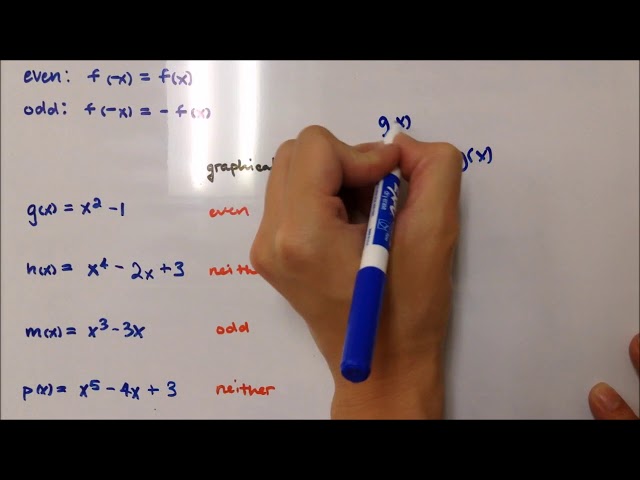 even: f(-x) = f(x)
odd: f(-x) = - f(x)
g(x)
g(x)
g(x) = x² - 1 even
h(x) = x⁴ - 2x + 3
m(x) = x³ - 3x odd
p(x) = x⁵ - 4x + 3 neither